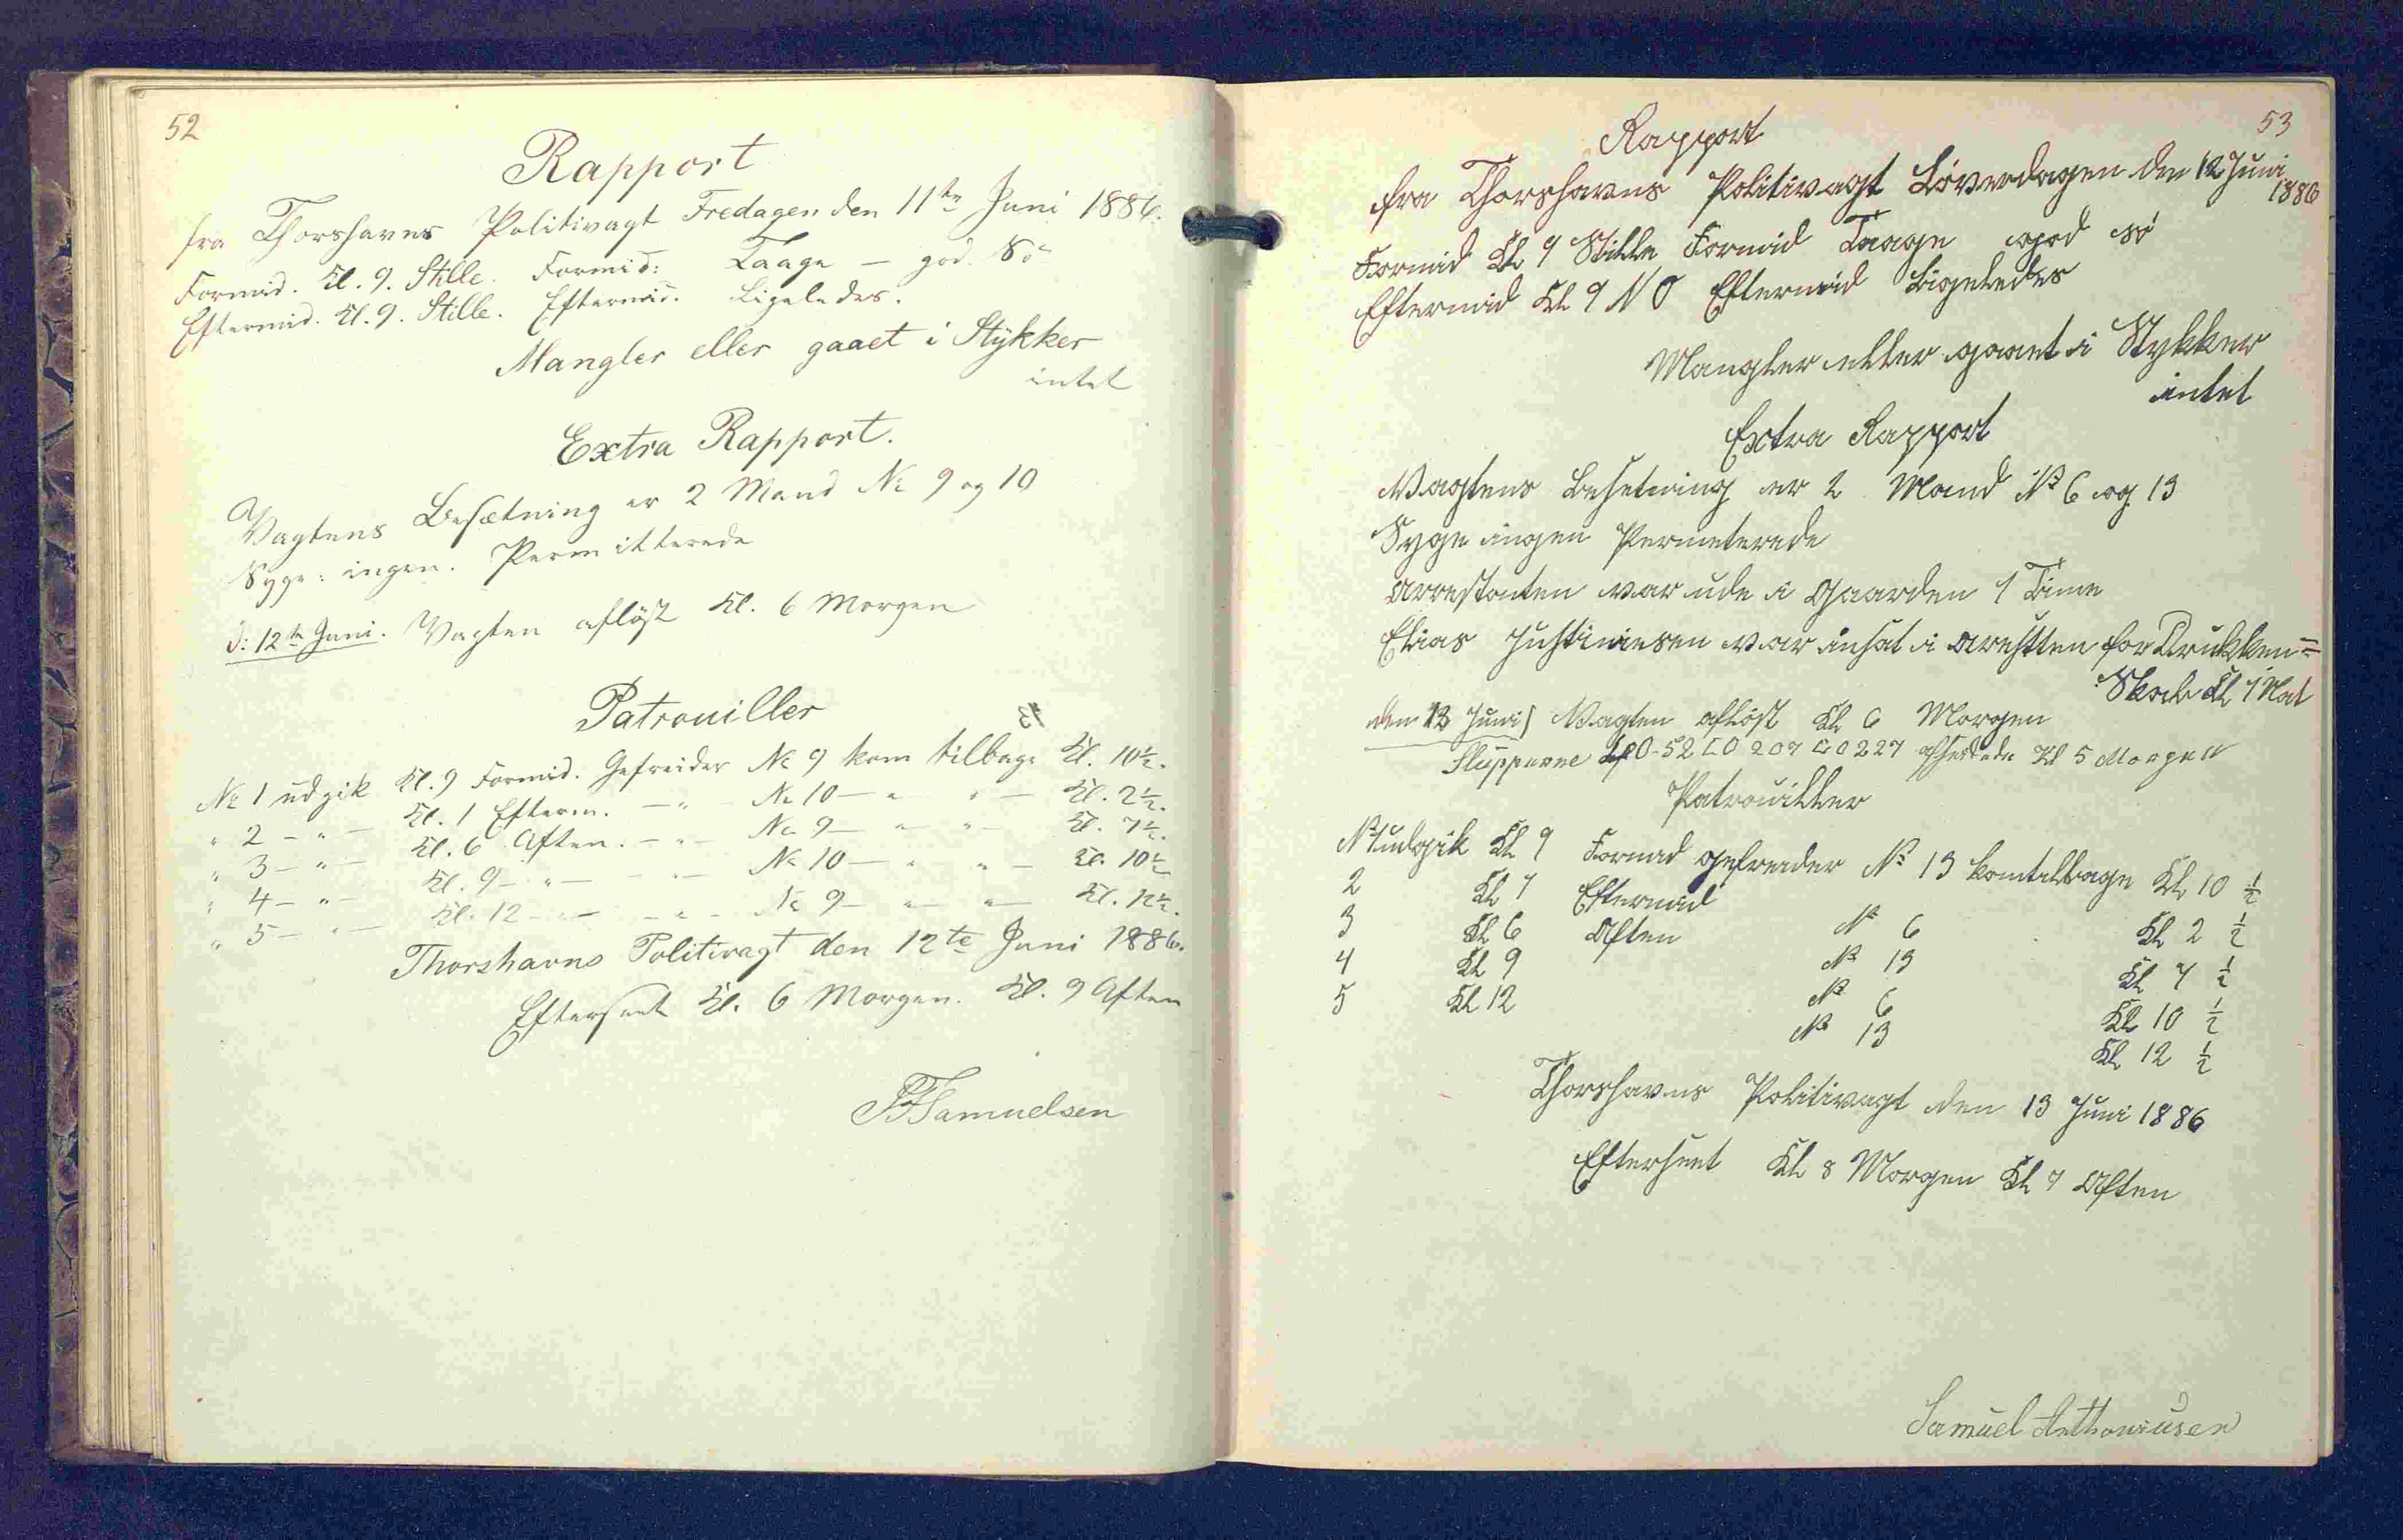 52
Rapport
fra Thorshavns Politivagt Fredagen den 11te Juni 1886.
Formid. Kl. 9. Stille. Formid: Taage – god Sö
Eftermid. Kl. 9. Stille. Eftermid. Ligeledes.
Mangler eller gaaet i Stykker
intet
Extra Rapport.
Vagtens Besætning er 2 Mand № 9 og 10
Syge: ingen. Permitterede
d: 12te Juni. Vagten aflöst Kl. 6 Morgen
Patrouiller
№ 1 udgik Kl. 9 Formid. Gefreider № 9 kom tilbage Kl. 10½.
" 2 – " – Kl. 1 Efterm. – " – № 10 – " " – Kl. 2½.
" 3 – " – Kl. 6 Aften. – " – № 9 – " " – Kl. 7½.
" 4 – " – Kl. 9 – " – – " – № 10 – " " – Kl. 10½
" 5 – " – Kl. 12 – " – – " – № 9 – " – " – Kl. 12½.
Thorshavns Politivagt den 12te Juni 1886.
Efterseet Kl. 6 Morgen. Kl. 9 Aften
Samuelsen
53
Rapport
fra Thorshavns Politivagt Löverdagen den 12 Juni
1886
Formid Kl 9 Stille Formid Taage god sö
Eftermid Kl 9 N O Eftermid Ligeledes
Mangler eller gaaet i Stykker
intet
Extra Rapport
Vagtens Besetning er 2 Mand № 6 og 13
Syge ingen Permeterede
Arrestanten var ude i Gaarden 1 Time
Elias Justinesen var insat i Arestten for Drukken=
Skab Kl 1 Nat
den 13 Juni) Vagten aflöst Kl 6 Morgen
Slupperne 0-52 0 207 0 227 afseilede Kl 5 Morgen
Patrouiller
№ 1 udgik Kl 9 Formid gefreider № 13 kom tilbage Kl 10 ½
2 Kl 1 Eftermid № 6 Kl 2 ½
3 Kl 6 Aften № 13 Kl 7 ½
4 Kl 9 № 6 Kl 10 ½
5 Kl 12 № 13 Kl 12 ½
Thorshavns Politivagt den 13 Juni 1886
Efterseet Kl 8 Morgen Kl 7 Aften
Samuel Anthoniusen